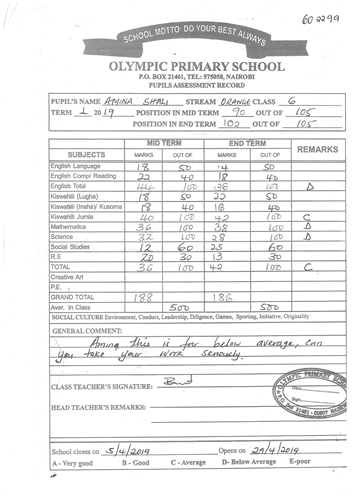 602299
SCHOOL MOTTO: DO YOUR BEST ALWAYS
OLYMPIC PRIMARY SCHOOL
P.O. BOX 21461, TEL: 575058, NAIROBI
PUPILS ASSESSMENT RECORD
PUPIL'S NAME AMINA SHALI STREAM ORANGE CLASS 6
TERM 1 2019 POSITION IN MID TERM 90 OUT OF 105
POSITION IN END TERM 102 OUT OF 105
MID TERM END TERM REMARKS
SUBJECTS MARKS OUT OF MARKS OUT OF
English Language 18 50 14 50
English Comp/ Reading 22 40 18 40
English Total 44 100 36 100 D
Kiswahili (Lugha) 18 50 22 50
Kiswahili (Insha)/ Kusoma 18 40 16 40
Kiswahili Jumla 40 100 42 100 C
Mathematics 36 100 38 100 D
Science 32 100 28 100 D
Social Studies 12 60 25 60
R.E 20 30 13 30
TOTAL 36 100 42 100 C
Creative Art
P.E.
GRAND TOTAL 188 186
Aver. In Class 500 500
SOCIAL CULTURE Environment, Conduct, Leadership, Diligence, Games, Sporting, Initiative, Originality
GENERAL COMMENT:
Amina this is far below average, can
you take your work seriously.
CLASS TEACHER'S SIGNATURE:
HEAD TEACHER'S REMARKS:
OLYMPIC PRIMARY
21461 - 00507
School closes on 5/4/2019 Opens on 29/4/2019
A - Very good B - Good C - Average D- Below Average E-poor